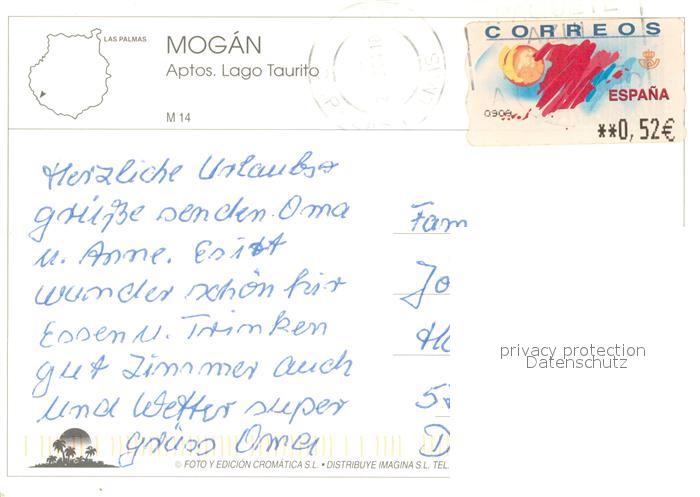 LAS PALMAS
MOGÁN
Aptos. Lago Taurito
M 14
CORREOS
ESPAÑA
0909
**0,52€
Herzliche Urlaubs
grüße senden Oma
u. Anne. Es ist
wunder schön hir
Essen u. Trinken
gut Zimmer auch
und Wetter super
grüss Oma
Fam
Jo
57
D
privacy protection
Datenschutz
© FOTO Y EDICIÓN CROMÁTICA S.L. • DISTRIBUYE IMAGINA S.L. TEL.